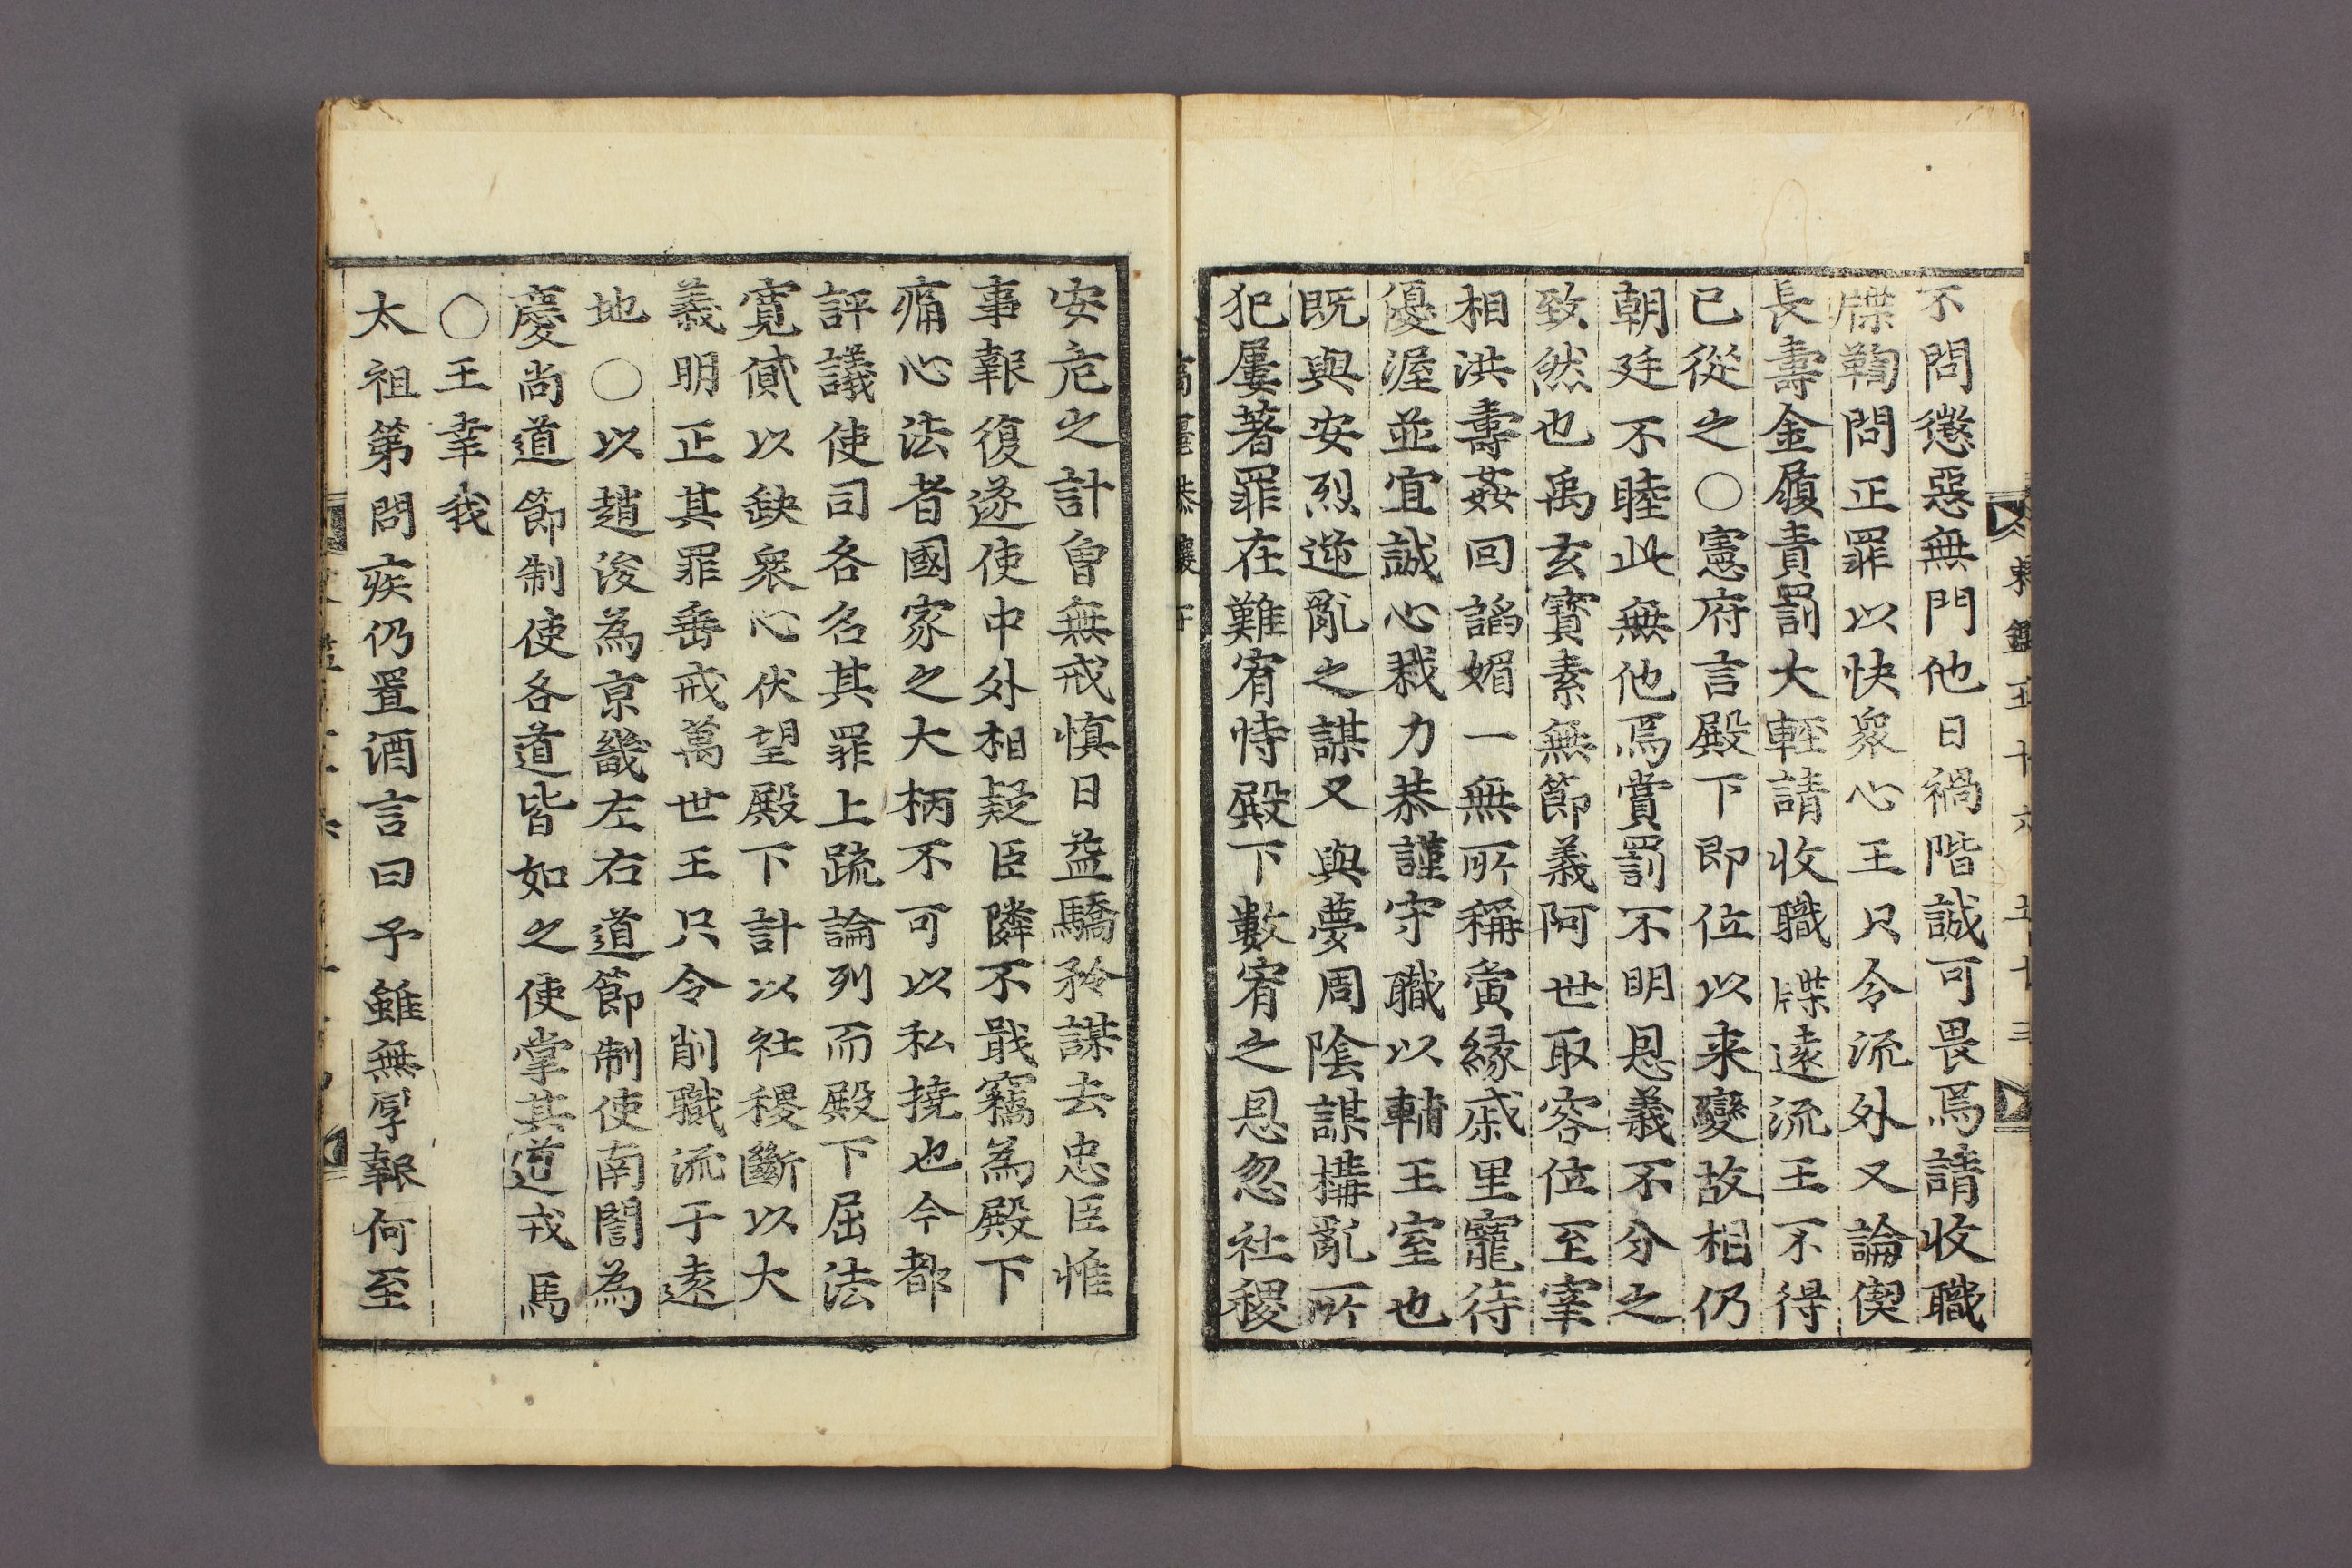 不問懲惡無門他日禍階誠可畏焉請收職
牒鞫問正罪以快衆心王只令流外又論偰
長壽金履責罰大輕請收職牒遠流王不得
已從之○憲府言殿下即位以来變故相仍
朝廷不睦此無他焉賞罰不明恩義不分之
致然也禹玄寳素無節義阿世取容位至宰
相洪壽姦回謟媚一無所稱夤縁戚里寵待
優渥並宜誠心戮力恭謹守職以輔王室也
既與安烈逆亂之謀又與夢周陰謀搆亂所
犯屢著罪在難宥恃殿下數宥之恩忽社稷
高麗恭讓下
安危之計曾無戒慎日益驕矜謀去忠臣惟
事報復遂使中外相疑臣隣不戢竊為殿下
痛心法者國家之大柄不可以私撓也今都
評議使司各名其罪上疏論列而殿下屈法
寛貸以缺衆心伏望殿下計以社稷斷以大
義明正其罪垂戒萬世王只令削職流于遠
地○以趙浚為京畿左右道節制使南誾為
慶尚道節制使各道皆如之使掌其道戎馬
○王幸我
太祖第問疾仍置酒言曰予雖無厚報何至